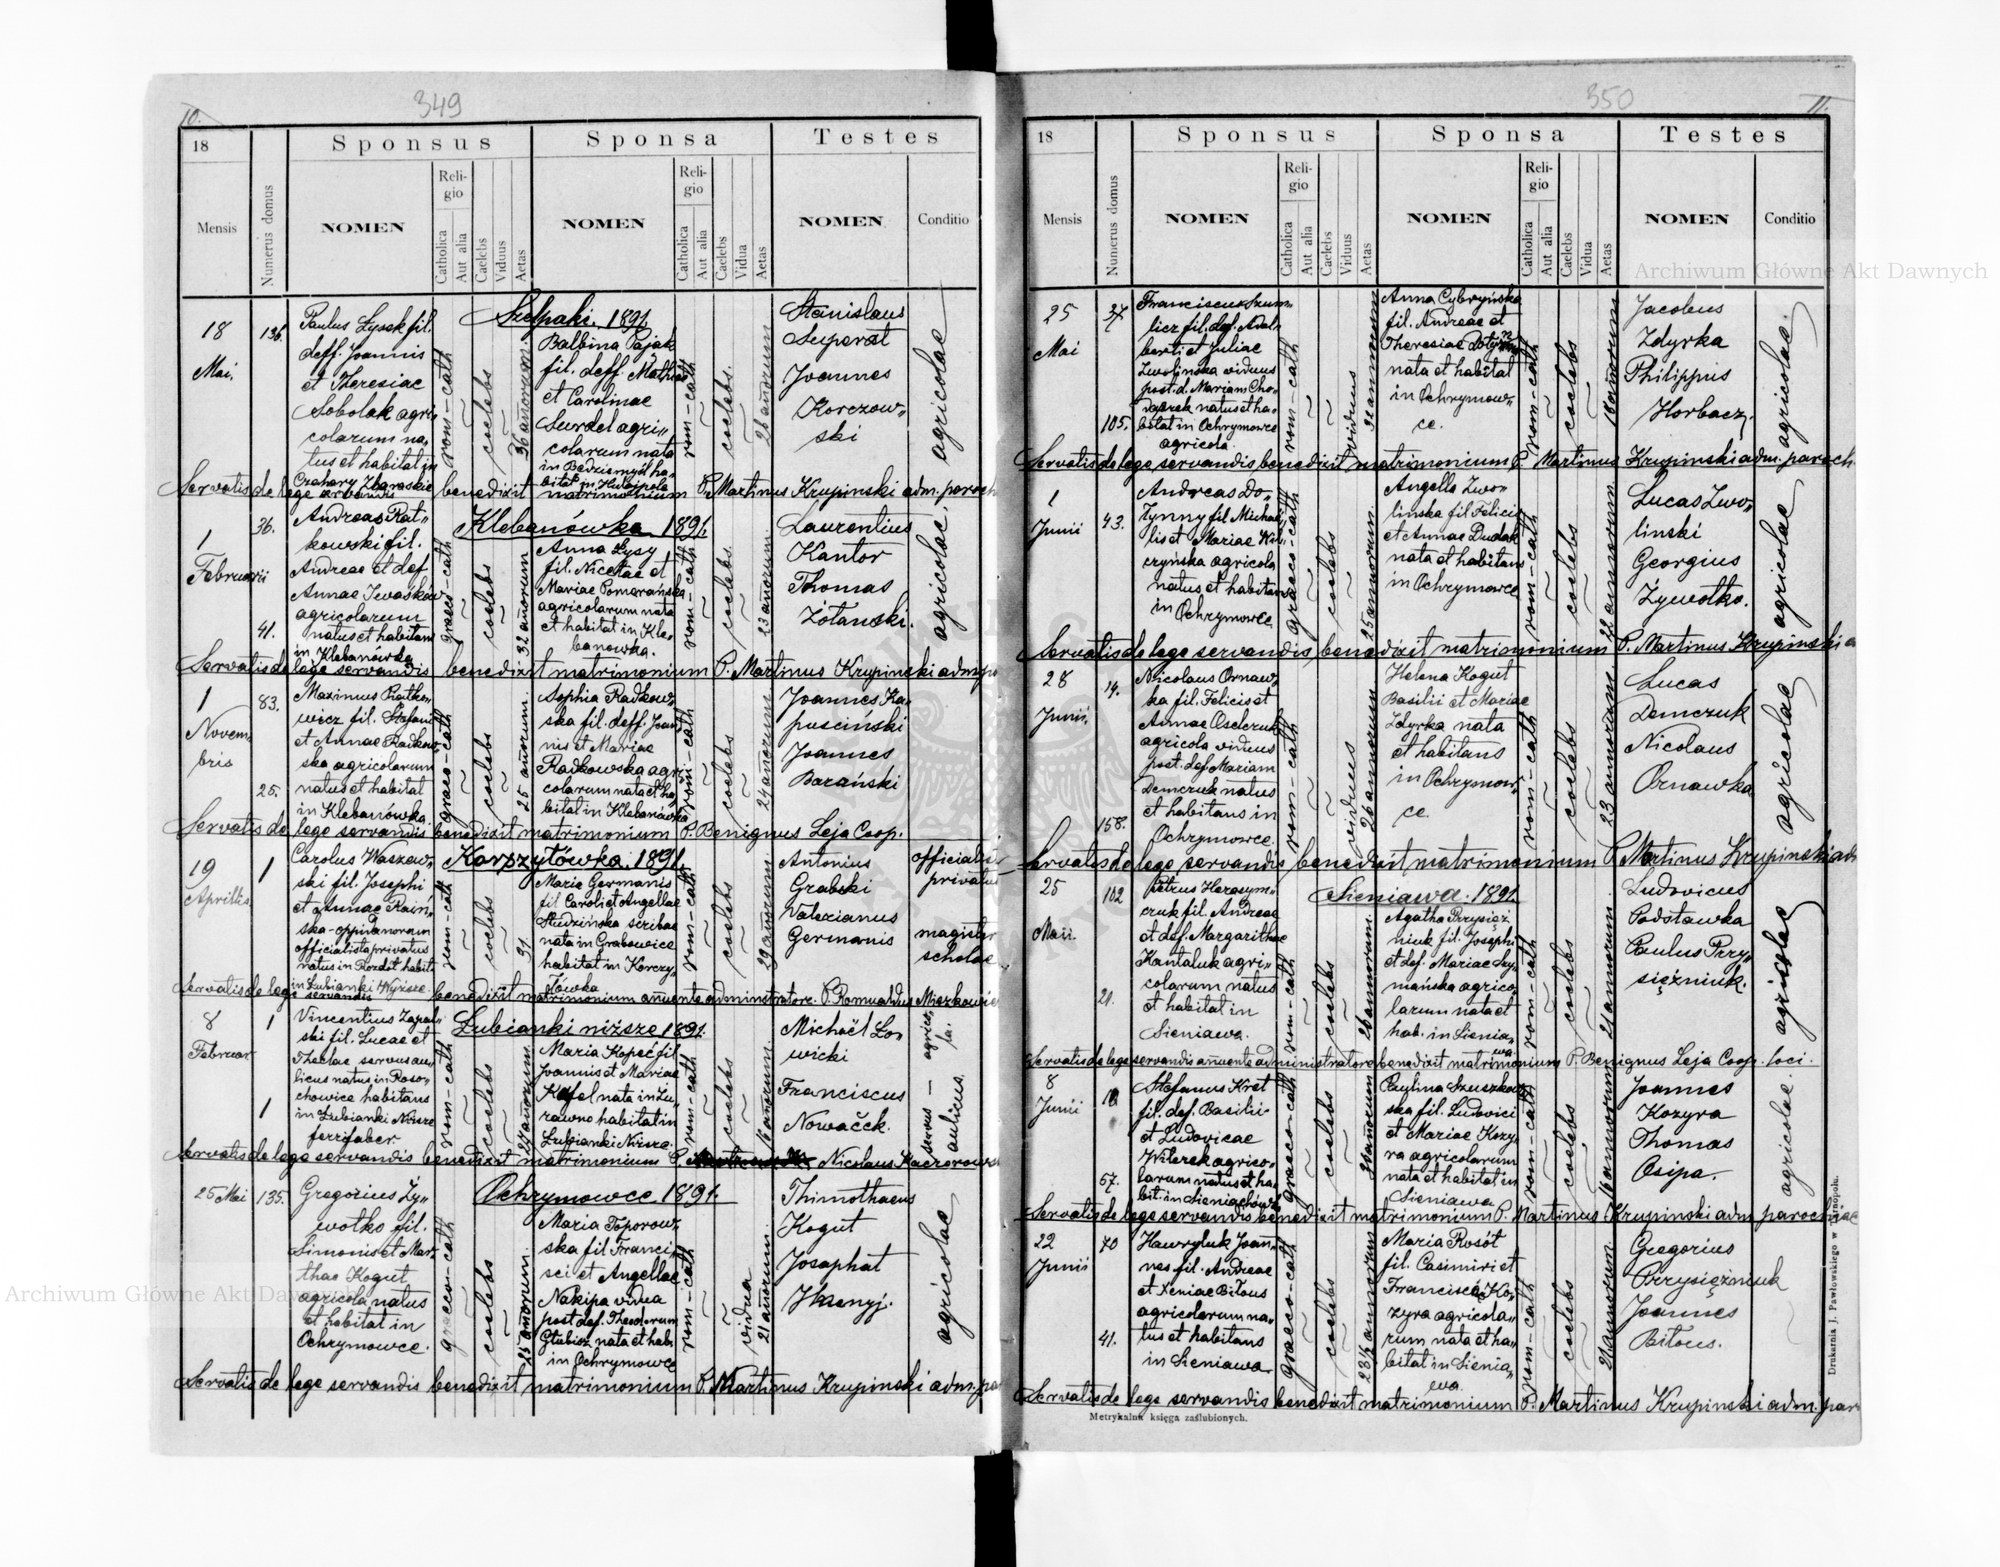 349
10.
18
Sponsus
Sponsa
Testes
Mensis
Numerus domus
NOMEN
Religio
Catholica
Aut alia
Caelebs
Viduus
Aetas
NOMEN
Religio
Catholica
Aut alia
Caelebs
Vidua
Aetas
NOMEN
Conditio
Szelpaki. 1891.
18
Mai.
136.
Paulus Lysek fil.
deff. Joannis
et Theresiae
Sobolak agri„
colarum na„
tus et habitat in
rom-cath
coelebs
36 añorum.
Balbina Pająk
fil. deff. Mathiae
et Carolinae
Surdel agri„
colarum nata
in Będziemyśl ha„
rom-cath
coelebs.
26 añorum
Stanislaus
Superat
Joannes
Korczow„
ski
agricolae
Servatis de lege servandis benedixit matrimonium P. Martinus Krupinski adm. paroch
Klebanówka 1891.
1
Februarii
36.
41.
Andreas Rat„
kowski fil.
Andreae et def
Annae
agricolarum
natus et habitans
in Klebanówka
graeco-cath
coelebs
32 añorum
Anna Lysy
fil. Nicetae et
Mariae Pomarańska
agricolarum nata
et habitat in Kle„
banowka.
rom-cath
coelebs
23 añorum
Laurentius
Kantor
Thomas
Żótański.
agricolae.
Servatis de lege servandis benedixit matrimonium P. Martinus Krupinski adm. pa
1
Novem„
bris
83.
25.
Maximus Ratko„
wicz fil. Stefani
et Annae Radkow„
ska agricolarum
natus et habitat
in Klebanówka.
graeco-cath
coelebs
25 añorum
Sophia Radkow„
ska fil. deff. Joan„
nis et Mariae
Radkowska agri„
colarum nata et ha„
bitat in Klebanówka
rom-cath
coelebs
24 añorum
Joannes Ka„
puściński
Joannes
Barański
Servatis de lege servandis benedixit matrimonium P. Benignus Leja Coop.
Korpzytówka. 1891.
19
Aprilis
1
Carolus Waszew„
ski fil. Josephi
et Annae Raiń„
ska-oppidanorum
officialista privatus
natus in Rozdół habit.
in Łubianki Wyższe.
rom-cath
coelebs
31.
Maria Germanis
fil Caroli et Angellae
Studzińska scribae
nata in Grabowiec
habitat in Korczy„
tówka
rom-cath
coelebs
29 añorum.
Antonius
Grabski
Valerianus
Germanis
officialis
privatus
magister
scholae
Servatis de lege servandis benedixit matrimonium añuente administratore P. Romualdus Mieszkowic
Łubianki niższe 1891.
8
Februar
1
1
Vincentius
ski fil. Lucae et
Theclae servus au„
licus natus in Roso„
chowice habitans
in Łubianki Niższe
ferrifaber
rom-cath
coelebs
24 añorum.
Maria Kopeć fil
Joannis et Mariae
nata in Żu„
rawno habitat in
Łubianki Niższe.
rom-cath
coelebs
Michaël Lo„
wicki
Franciscus
Nowaček.
servus — aulicus.
Servatis de lege servandis benedixit matrimonium P. Nicolaus Kaczorowsk
Ochrymowce 1891.
25 Mai
135.
Gregorius Zy„
wotko fil.
Simonis et Mar„
thae Kogut
agricola natus
et habitat in
Ochrymowce.
graeco-cath
coelebs
25 añorum.
Maria Toporow„
ska fil Franci„
sci et Angellae
Nakipa vidua
post def. Theodorum
nata et hab.
in Ochrymowce
rom-cath
vidua
21 añorum.
Thimothaeus
Kogut
Josaphat
agricolae
Servatis de lege servandis benedixit matrimonium P. Martinus Krupinski adm. pa
350
11.
18
Sponsus
Sponsa
Testes
Mensis
Numerus domus
NOMEN
Religio
Catholica
Aut alia
Caelebs
Viduus
Aetas
NOMEN
Religio
Catholica
Aut alia
Caelebs
Vidua
Aetas
NOMEN
Conditio
25
Mai
37
105.
Franciscus Szum„
licz fil. def. Adal„
berti et Juliae
Zwolinska viduus
post. d. Mariam Cho„
natus et ha„
bitat in Ochrymowce
agricola.
rom-cath
viduus
32 annorum
Anna Cybryńska
fil. Andreae et
Theresiae
nata et habitat
in Ochrymow„
ce.
rom-cath
coelebs
18 añorum
Jacobus
Zdyrka
Philippus
Horbacz
agricolae.
Servatis de lege servandis benedixit matrimonium P. Martinus Krupinski adm. paroch.
1
Junii
43.
Andreas Do„
żynny fil Michae„
lis et Mariae Ku„
czyńska agricola
natus et habitans
in Ochrymowce
graeco-cath
coelebs
25 annorum.
Angella Zwo„
linska fil Felicis
et Annae Dudak
nata et habitans
in Ochrymowce
rom-cath
coelebs
22 annorum.
Lucas Zwo„
linski
Georgius
Żywotko.
agricolae
Servatis de lege servandis benedixit matrimonium P. Martinus Krupinski a
28
Junii.
14.
158.
Nicolaus Ornaw„
ka fil. Felicis et
Annae
agricola viduus
post. def. Mariam
Demczuk natus
et habitans in
Ochrymowce.
rom-cath
viduus
26 annorum
Helena Kogut
Basilii et Mariae
Zdyrka nata
et habitans
in Ochrymow„
ce.
rom-cath
coelebs
23 annorum
Lucas
Demczuk
Nicolaus
Ornawka
agricolae
Servatis de lege servandis benedixit matrimonium P. Martinus Krupinski ad
Sieniawa. 1891.
25
Maii.
102
21.
Petrus Herasym„
czuk fil. Andreae
et def. Margarithae
Kantaluk agri„
colarum natus
et habitat in
Sieniawa.
rom-cath
coelebs
26 annorum.
Agatha Przysięż„
niuk fil. Josephi
et def. Mariae Szy„
mańska agrico„
larum nata et
hab. in Sienia„
wa.
rom-cath
coelebs
21 annorum
Ludovicus
Podstawka
Paulus Przy„
siężniuk.
agricolae
Servatis de lege servandis añuente administratore benedixit matrimonium P. Benignus Leja Coop. loci.
8
Junii
67.
Stefanus Kret
fil. def. Basilii
et Ludovicae
Wilczek agrico„
larum natus et ha„
bit. in Sieniachówka
graeco-cath
coelebs
Paulina Szuszkow„
ska fil. Ludovici
et Mariae Kozy„
ra agricolarum
nata et habitat in
Sieniawa.
rom-cath
coelebs
16 annorum
Joannes
Kozyra
Thomas
Osipa.
agricolae.
Servatis de lege servandis benedixit matrimonium P. Martinus Krupinski adm parochiae
22
Junii
70
41.
Hawryluk Joan„
nes fil. Andreae
et Xeniae Bitous
agricolarum na„
tus et habitans
in Sieniawa
graeco-cath
coelebs
23½ annorum
Maria Rosół
fil. Casimiri et
Franciscae Ko„
zyra agricola„
rum nata et ha„
bitat in Sienia„
wa.
rom-cath
coelebs
21 annorum.
Gregorius
Przysiężniuk
Joannes
Bitous.
Servatis de lege servandis benedixit matrimonium P. Martinus Krupinski adm. par
Metrykalna księga zaślubionych.
Drukarnia J. Pawłowskiego w Tarnopolu.
Archiwum Główne Akt Dawnych
Archiwum Główne Akt Dawnych